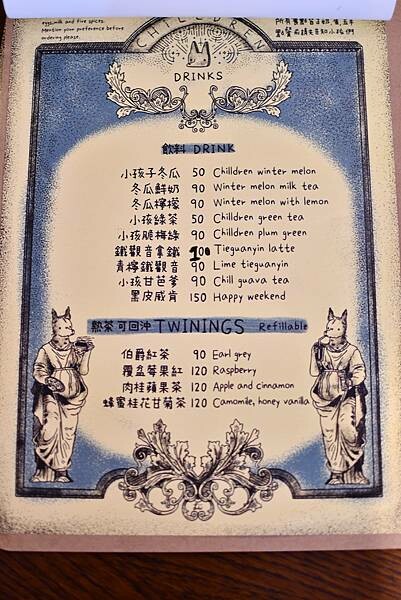 eggs,milk and five spices.
Mention your preference before
ordering please.
CHILLDREN
DRINKS
飲料 DRINK
小孩子冬瓜 50 Chilldren winter melon
冬瓜鮮奶 90 Winter melon milk tea
冬瓜檸檬 90 Winter melon with lemon
小孩綠茶 50 Chilldren green tea
小孩脆梅綠 90 Chilldren plum green
鐵觀音拿鐵 100 Tieguanyin latte
青檸鐵觀音 90 Lime tieguanyin
小孩甘芭爹 90 Chill guava tea
黑皮威肯 150 Happy weekend
熱茶可回沖 TWININGS Refillable
伯爵紅茶 90 Earl grey
覆盆莓果紅 120 Raspberry
肉桂蘋果茶 120 Apple and cinnamon
蜂蜜桂花甘菊茶 120 Camomile, honey vanilla